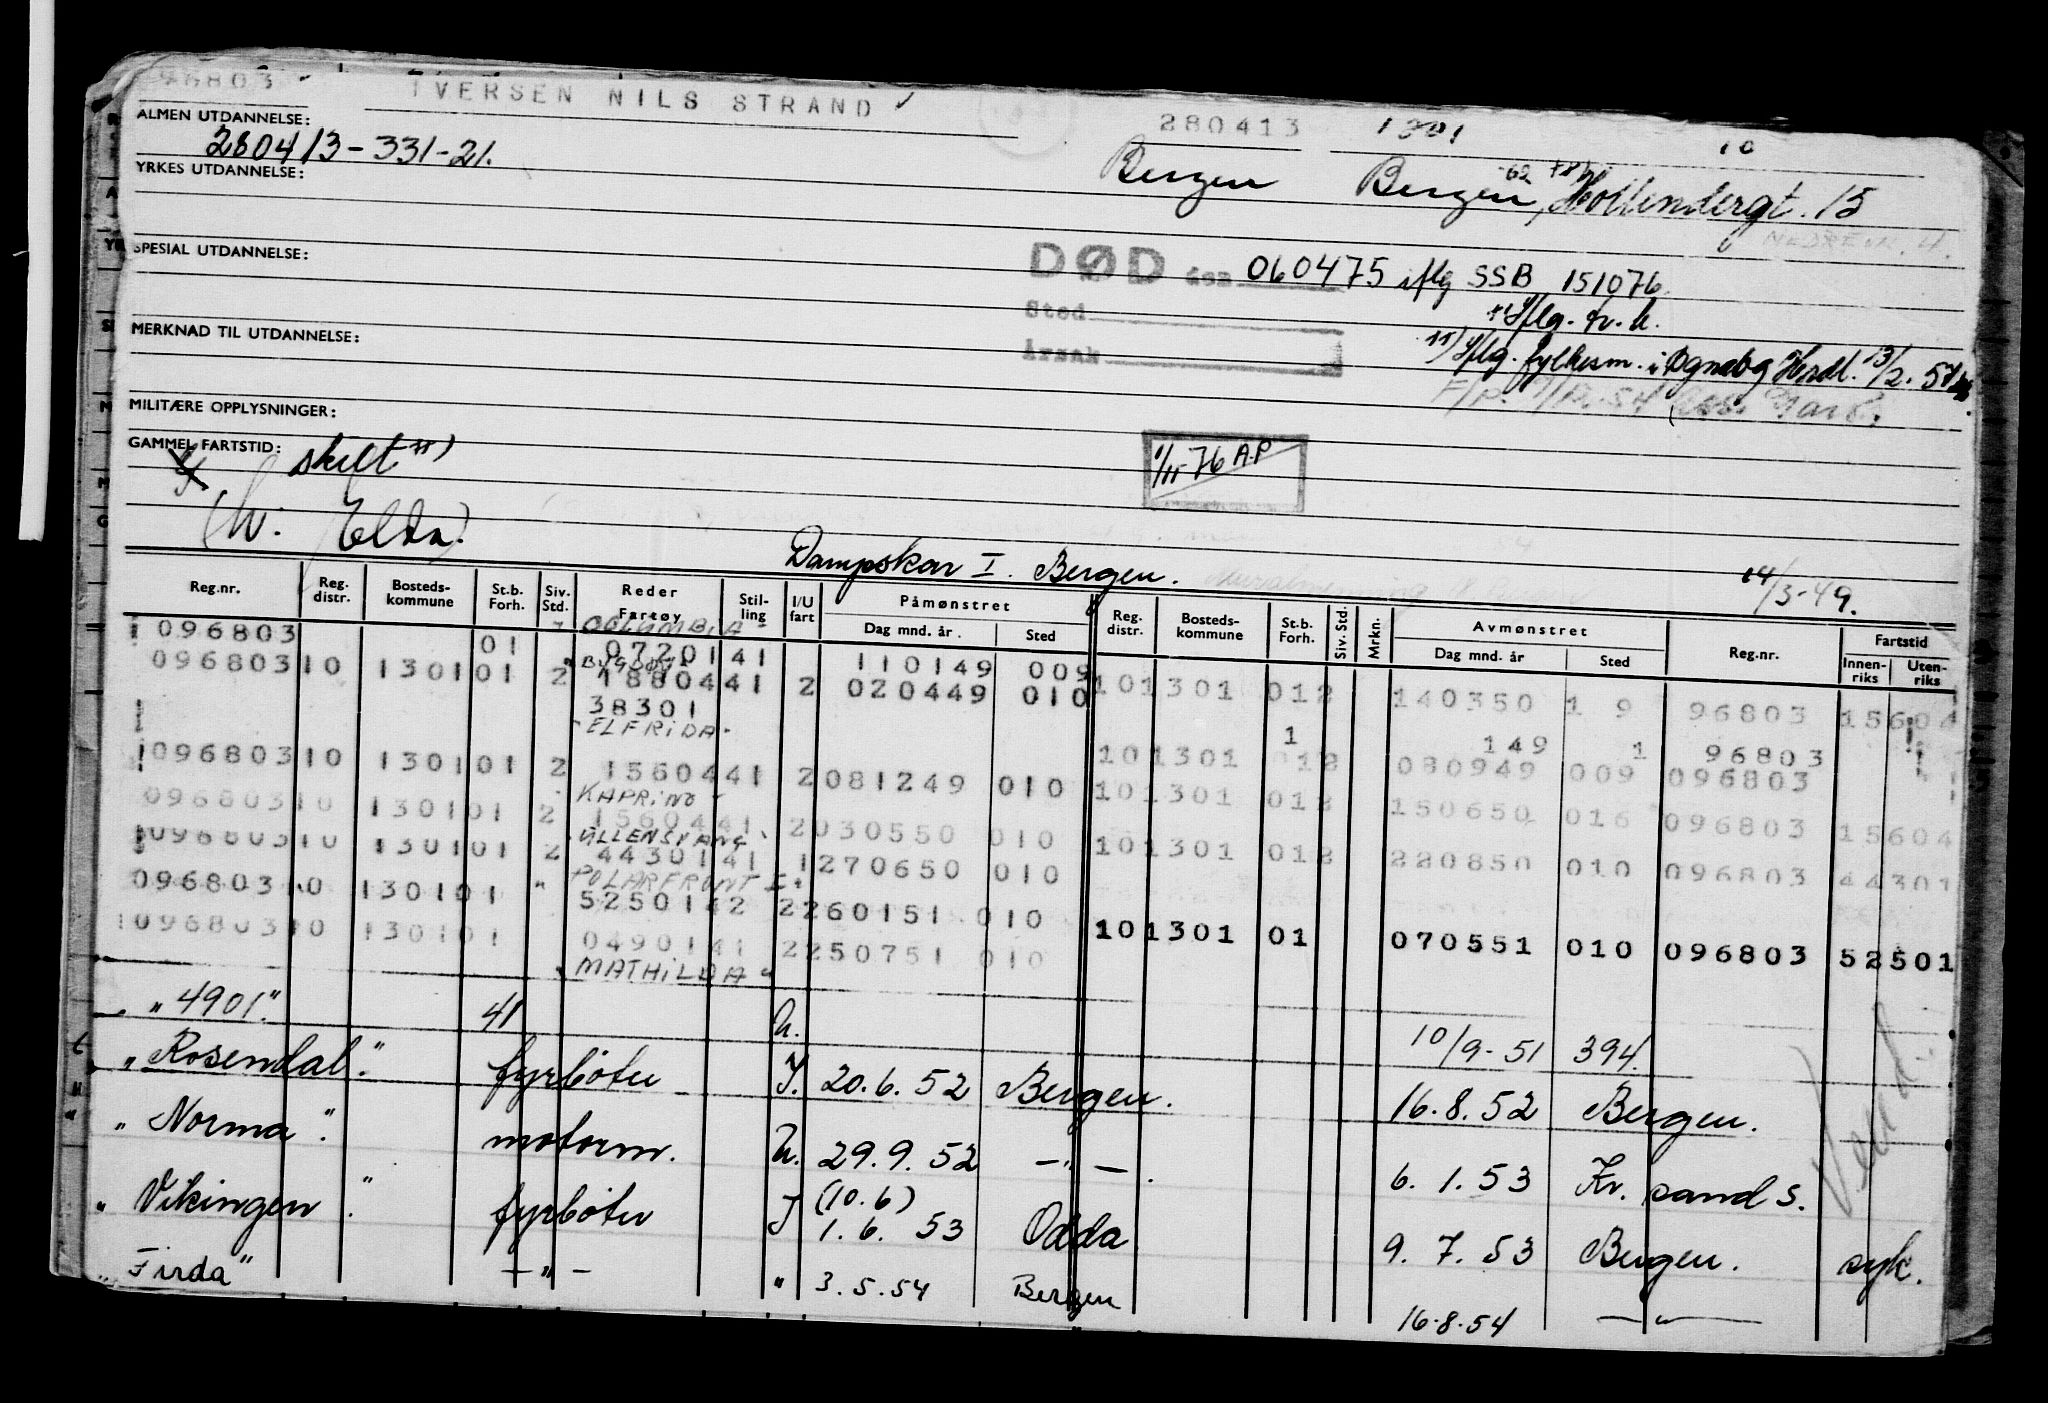 96803 IVERSEN NILS STRAND 280413 1301 10
ALMEN UTDANNELSE:
280413-331-21.
Bergen Bergen, Hollendergt. 15
YRKES UTDANNELSE:
SPESIAL UTDANNELSE:
DØD den 060475 iflg SSB 151076
Sted
Iflg. fr. k.
Årsak
MERKNAD TIL UTDANNELSE:
Iflg. fylkesm. i Bgn og Hordl. 13/2. 57
MILITÆRE OPPLYSNINGER:
GAMMEL FARTSTID:
skilt
1/11-76 A.P
(h. Elda)
Dampskar I. Bergen. 14/3-49.
Reg.nr. Reg. distr. Bosteds-kommune St.b. Forh. Siv. Std. Reder Fartøy Stil-ling I/U fart Påmønstret Dag mnd. år Sted Reg. distr. Bosteds-kommune St.b. Forh. Siv. Std. Mrkn. Avmønstret Dag mnd. år Sted Reg.nr. Fartstid Innen-riks Uten-riks
COLUMBIA
096803 01 0720141 110149 009
BYGDØY
096803 10 1301 01 2 1880441 2 020449 010 10 1301 012 140350 1 9 96803 15604
38301
ELFRIDA
1 149 1 96803
096803 10 1301 01 2 1560441 2 081249 010 10 1301 012 080949 009 096803
KAPRINO
096803 10 1301 01 2 1560441 2 030550 010 10 1301 012 150650 016 096803 15604
ULLENSVANG
096803 10 1301 01 2 4430141 1 270650 010 10 1301 012 220850 010 096803 44301
POLARFRONT I
096803 10 1301 01 5250142 2 260151 010
096803 10 1301 01 0490141 2 250751 010 10 1301 01 070551 010 096803 52501
MATHILDA
"4901." 41 U. 10/9-51 394.
"Rosendal". fyrbøter I. 20.6.52 Bergen. 16.8.52 Bergen.
"Norma". motorm. U. 29.9.52 -"- 6.1.53 Kr.sand S.
(10.6)
"Vikingen". fyrbøter I 1.6.53 Odda 9.7.53 Bergen. syk.
"Firda" -"- " 3.5.54 Bergen 16.8.54 -"-